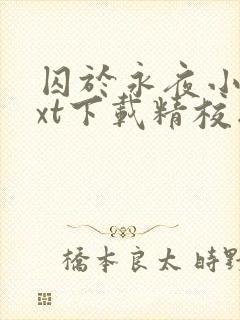 囚於永夜小
xt下載精校
橋本良太 時野